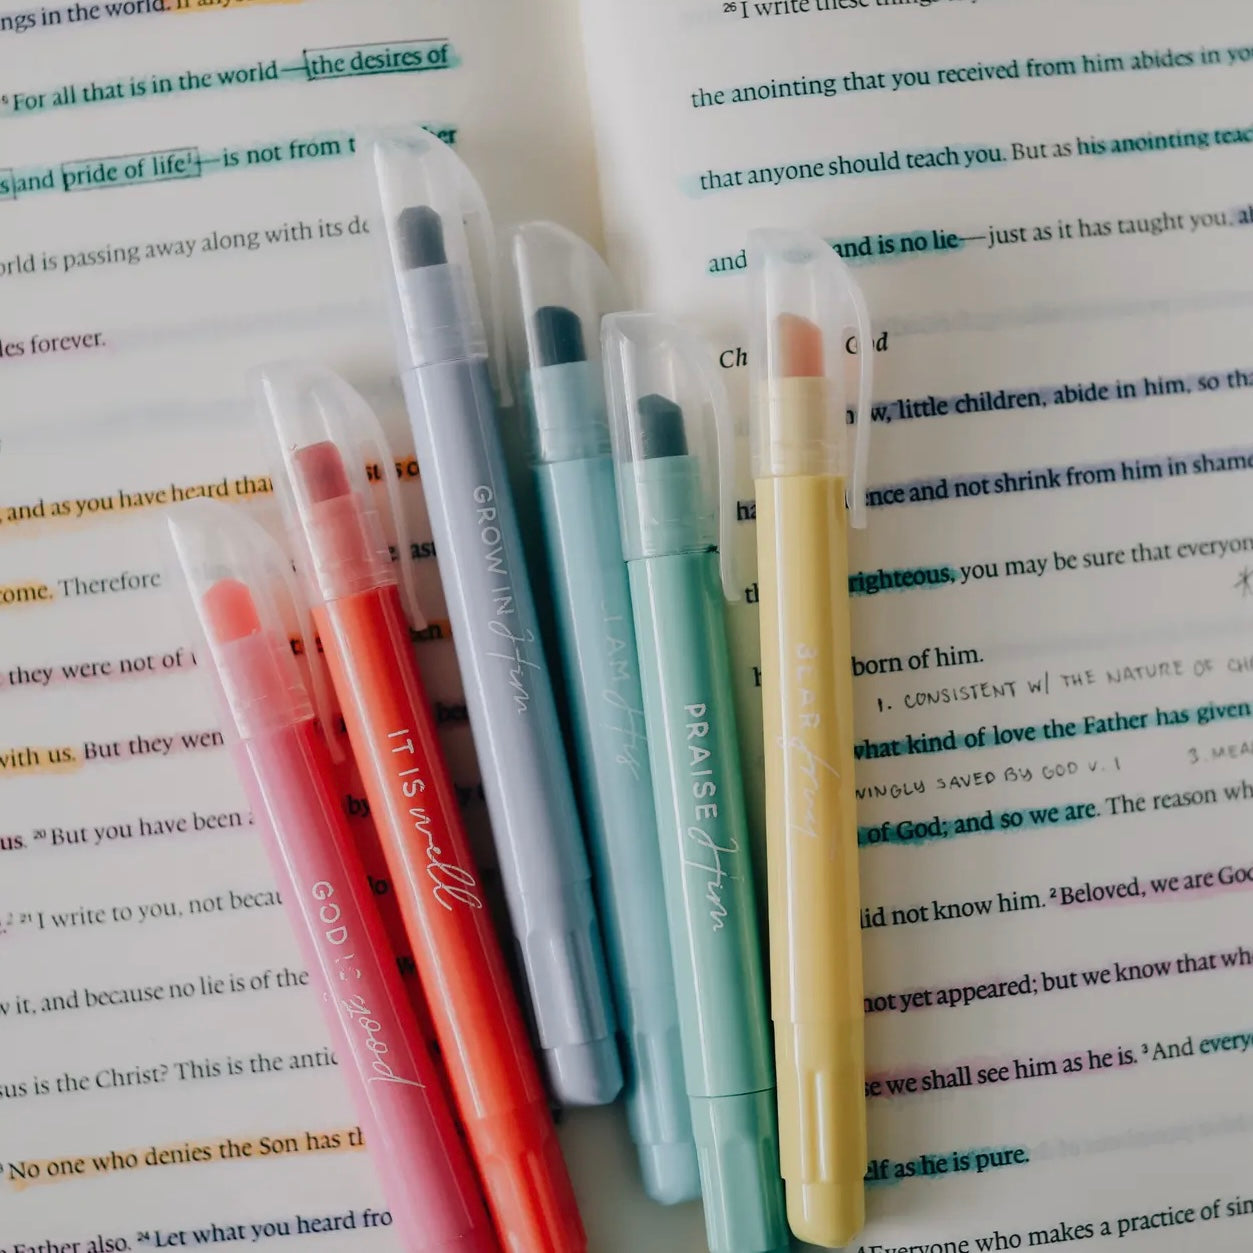 ngs in the world.
⁶ For all that is in the world—the desires of
and pride of life¹—is not from
orld is passing away along with its
les forever.
, and as you have heard that
come. Therefore
they were not of
with us. But they
us. ²⁰ But you have been
²¹ I write to you, not
it, and because no lie is of the
sus is the Christ? This is the
No one who denies the Son has
Father also. ²⁴ Let what you heard
²⁶ I write these
the anointing that you received from him abides in
that anyone should teach you. But as his anointing
and and is no lie—just as it has taught you,
little children, abide in him, so
and not shrink from him in shame
righteous, you may be sure that
born of him.
1. CONSISTENT W/ THE NATURE OF
what kind of love the Father has given
SAVED BY GOD V. 1 3.
of God; and so we are. The reason
did not know him. ² Beloved, we are
not yet appeared; but we know that
we shall see him as he is. ³ And
as he is pure.
Everyone who makes a practice of
GOD IS good
IT IS well
GROW IN Him
I AM His
PRAISE Him
BEAR fruit